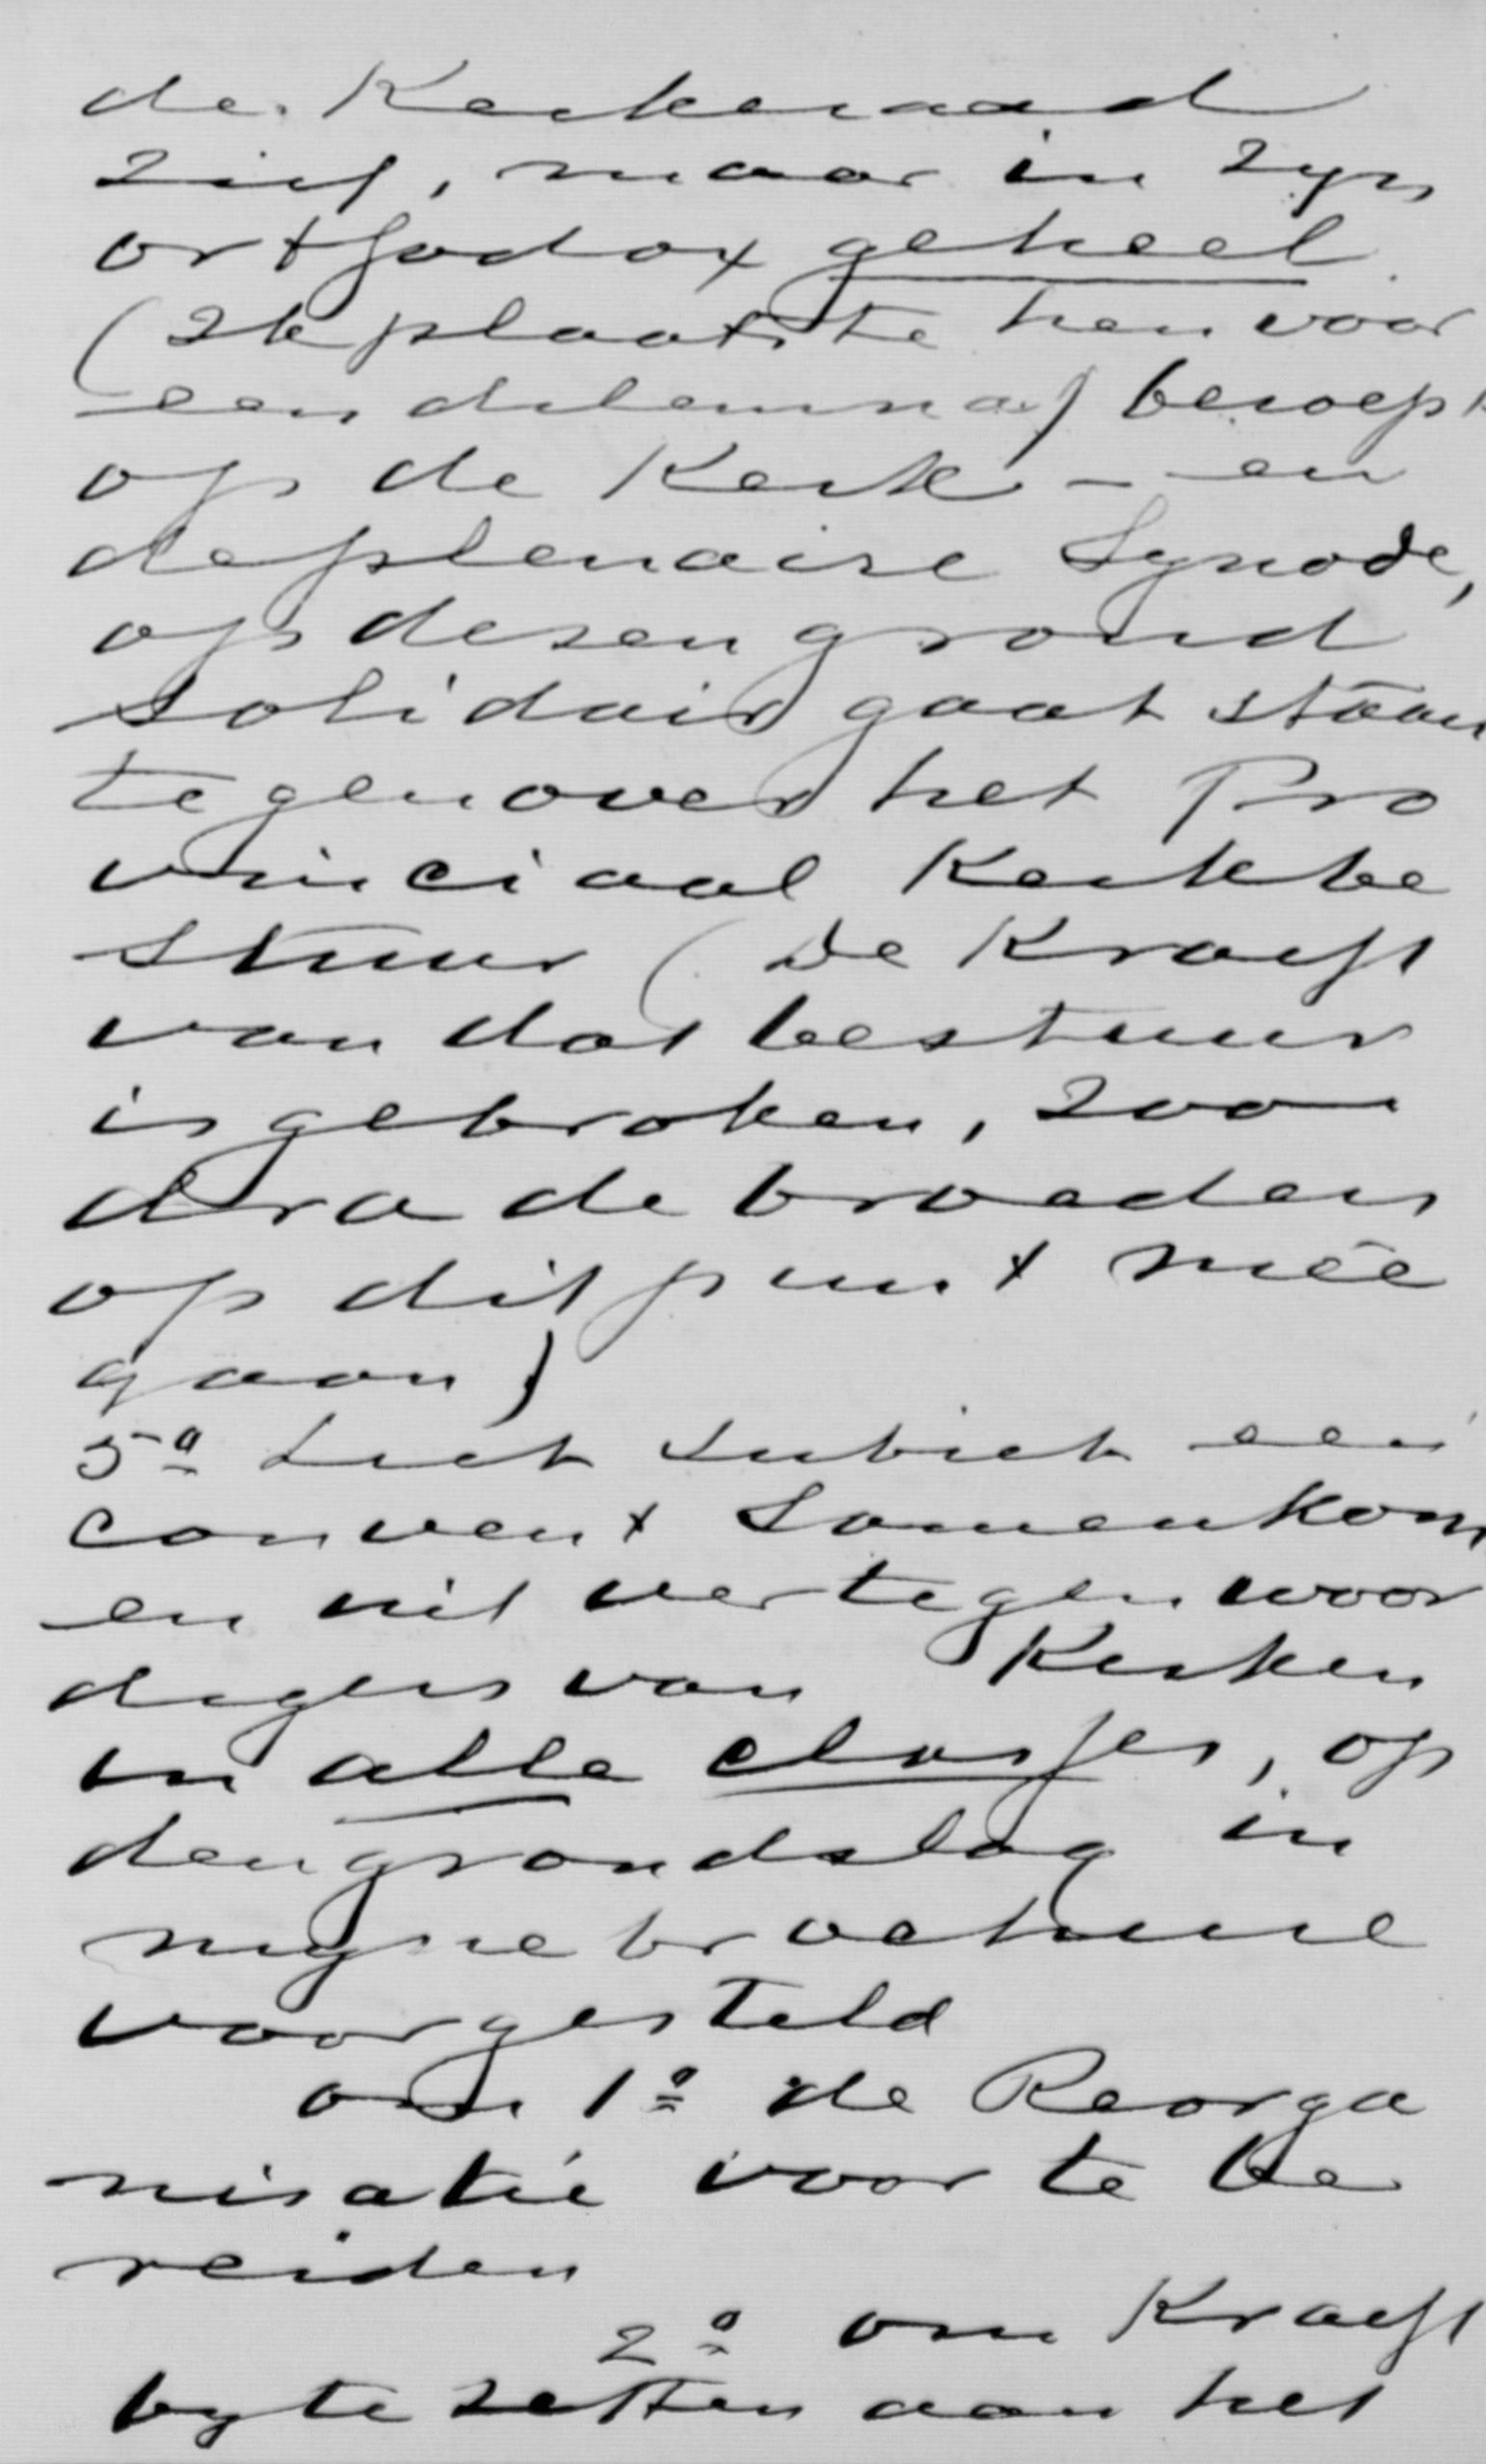 de Kerkeraad
zich, maar in zyn
orthodox geheel
(Ik plaatste hen voor
een dilemma) beroept
op de Kerk - en
de plenaire Synode,
op dezen grond
solidair gaat staan
tegenover het Pro
vinciaal Kerkbe
stuur (De Kracht
van dat bestuur
is gebroken, zoo
dra de broeders
op dit punt mêe
gaan)
5º Luct subiet een
convent samenkom
en uit vertegenwoor
digers van Kerken
in alle classes, op
den grondslag in
myne brochure
voorgesteld
om 1º de Reorga
nisatie voor te be
reiden
2º om Kracht
by te zetten aan het